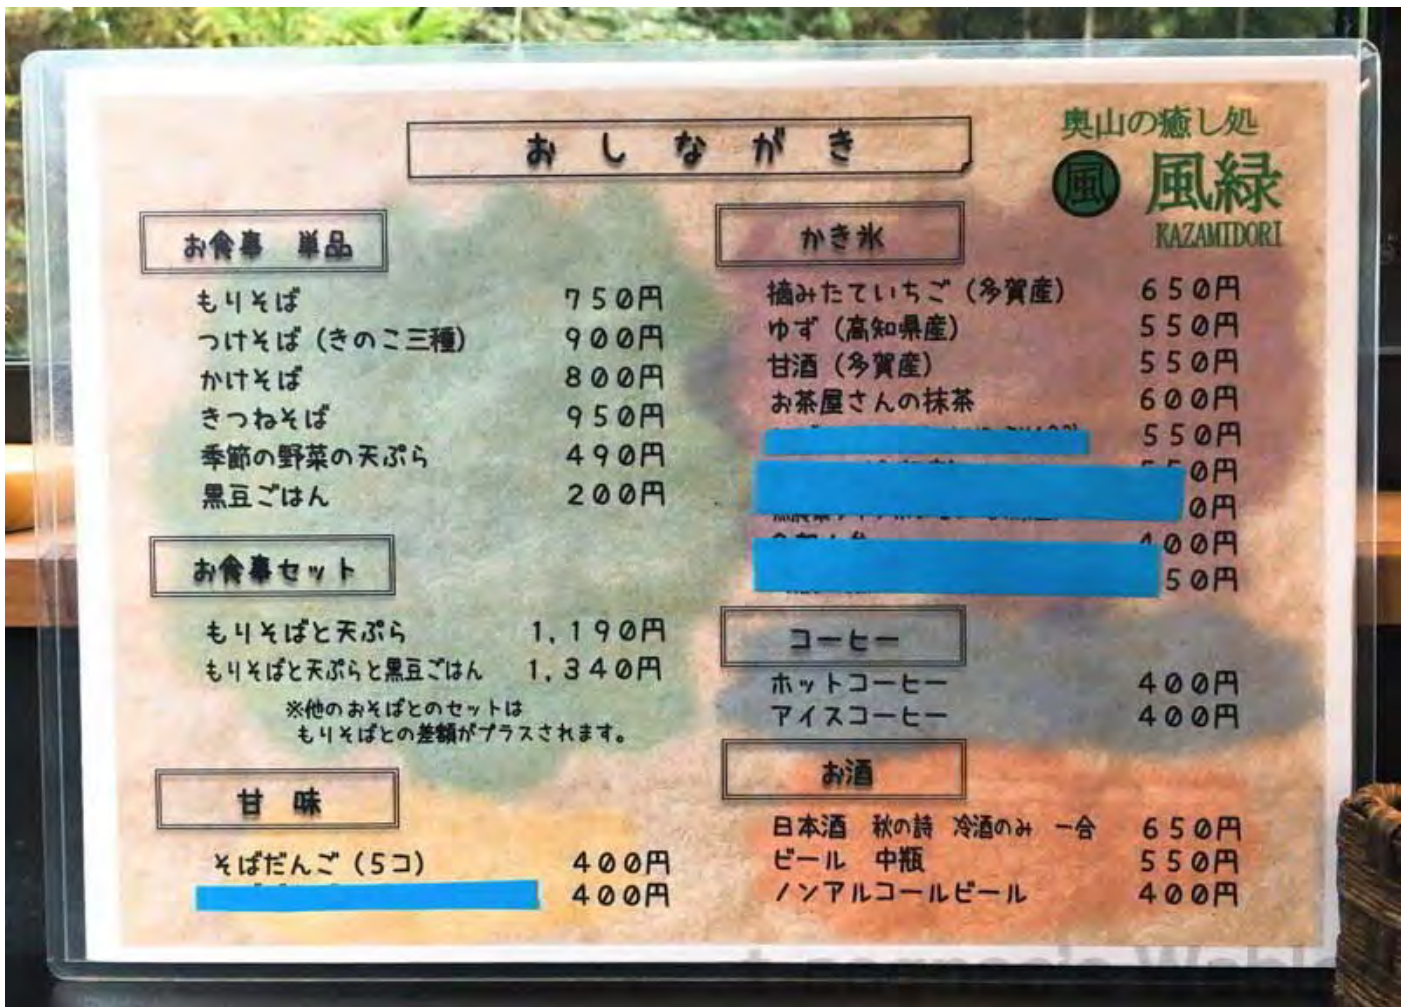 おしながき
奥山の癒し処
風 風緑
KAZAMIDORI
お食事 単品
もりそば 750円
つけそば（きのこ三種） 900円
かけそば 800円
きつねそば 950円
季節の野菜の天ぷら 490円
黒豆ごはん 200円
お食事セット
もりそばと天ぷら 1,190円
もりそばと天ぷらと黒豆ごはん 1,340円
※他のおそばとのセットは
もりそばとの差額がプラスされます。
甘味
そばだんご（5コ） 400円
400円
かき氷
摘みたていちご（多賀産） 650円
ゆず（高知県産） 550円
甘酒（多賀産） 550円
お茶屋さんの抹茶 600円
550円
0円
0円
00円
50円
コーヒー
ホットコーヒー 400円
アイスコーヒー 400円
お酒
日本酒 秋の詩 冷酒のみ 一合 650円
ビール 中瓶 550円
ノンアルコールビール 400円